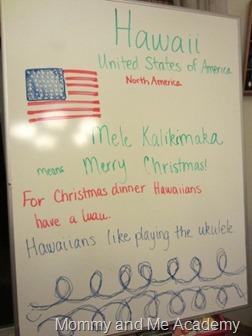 Hawaii
United States of America
North America
Mele Kalikimaka
means Merry Christmas!
For Christmas dinner Hawaiians
have a luau.
Hawaiians like playing the ukulele
Mommy and Me Academy